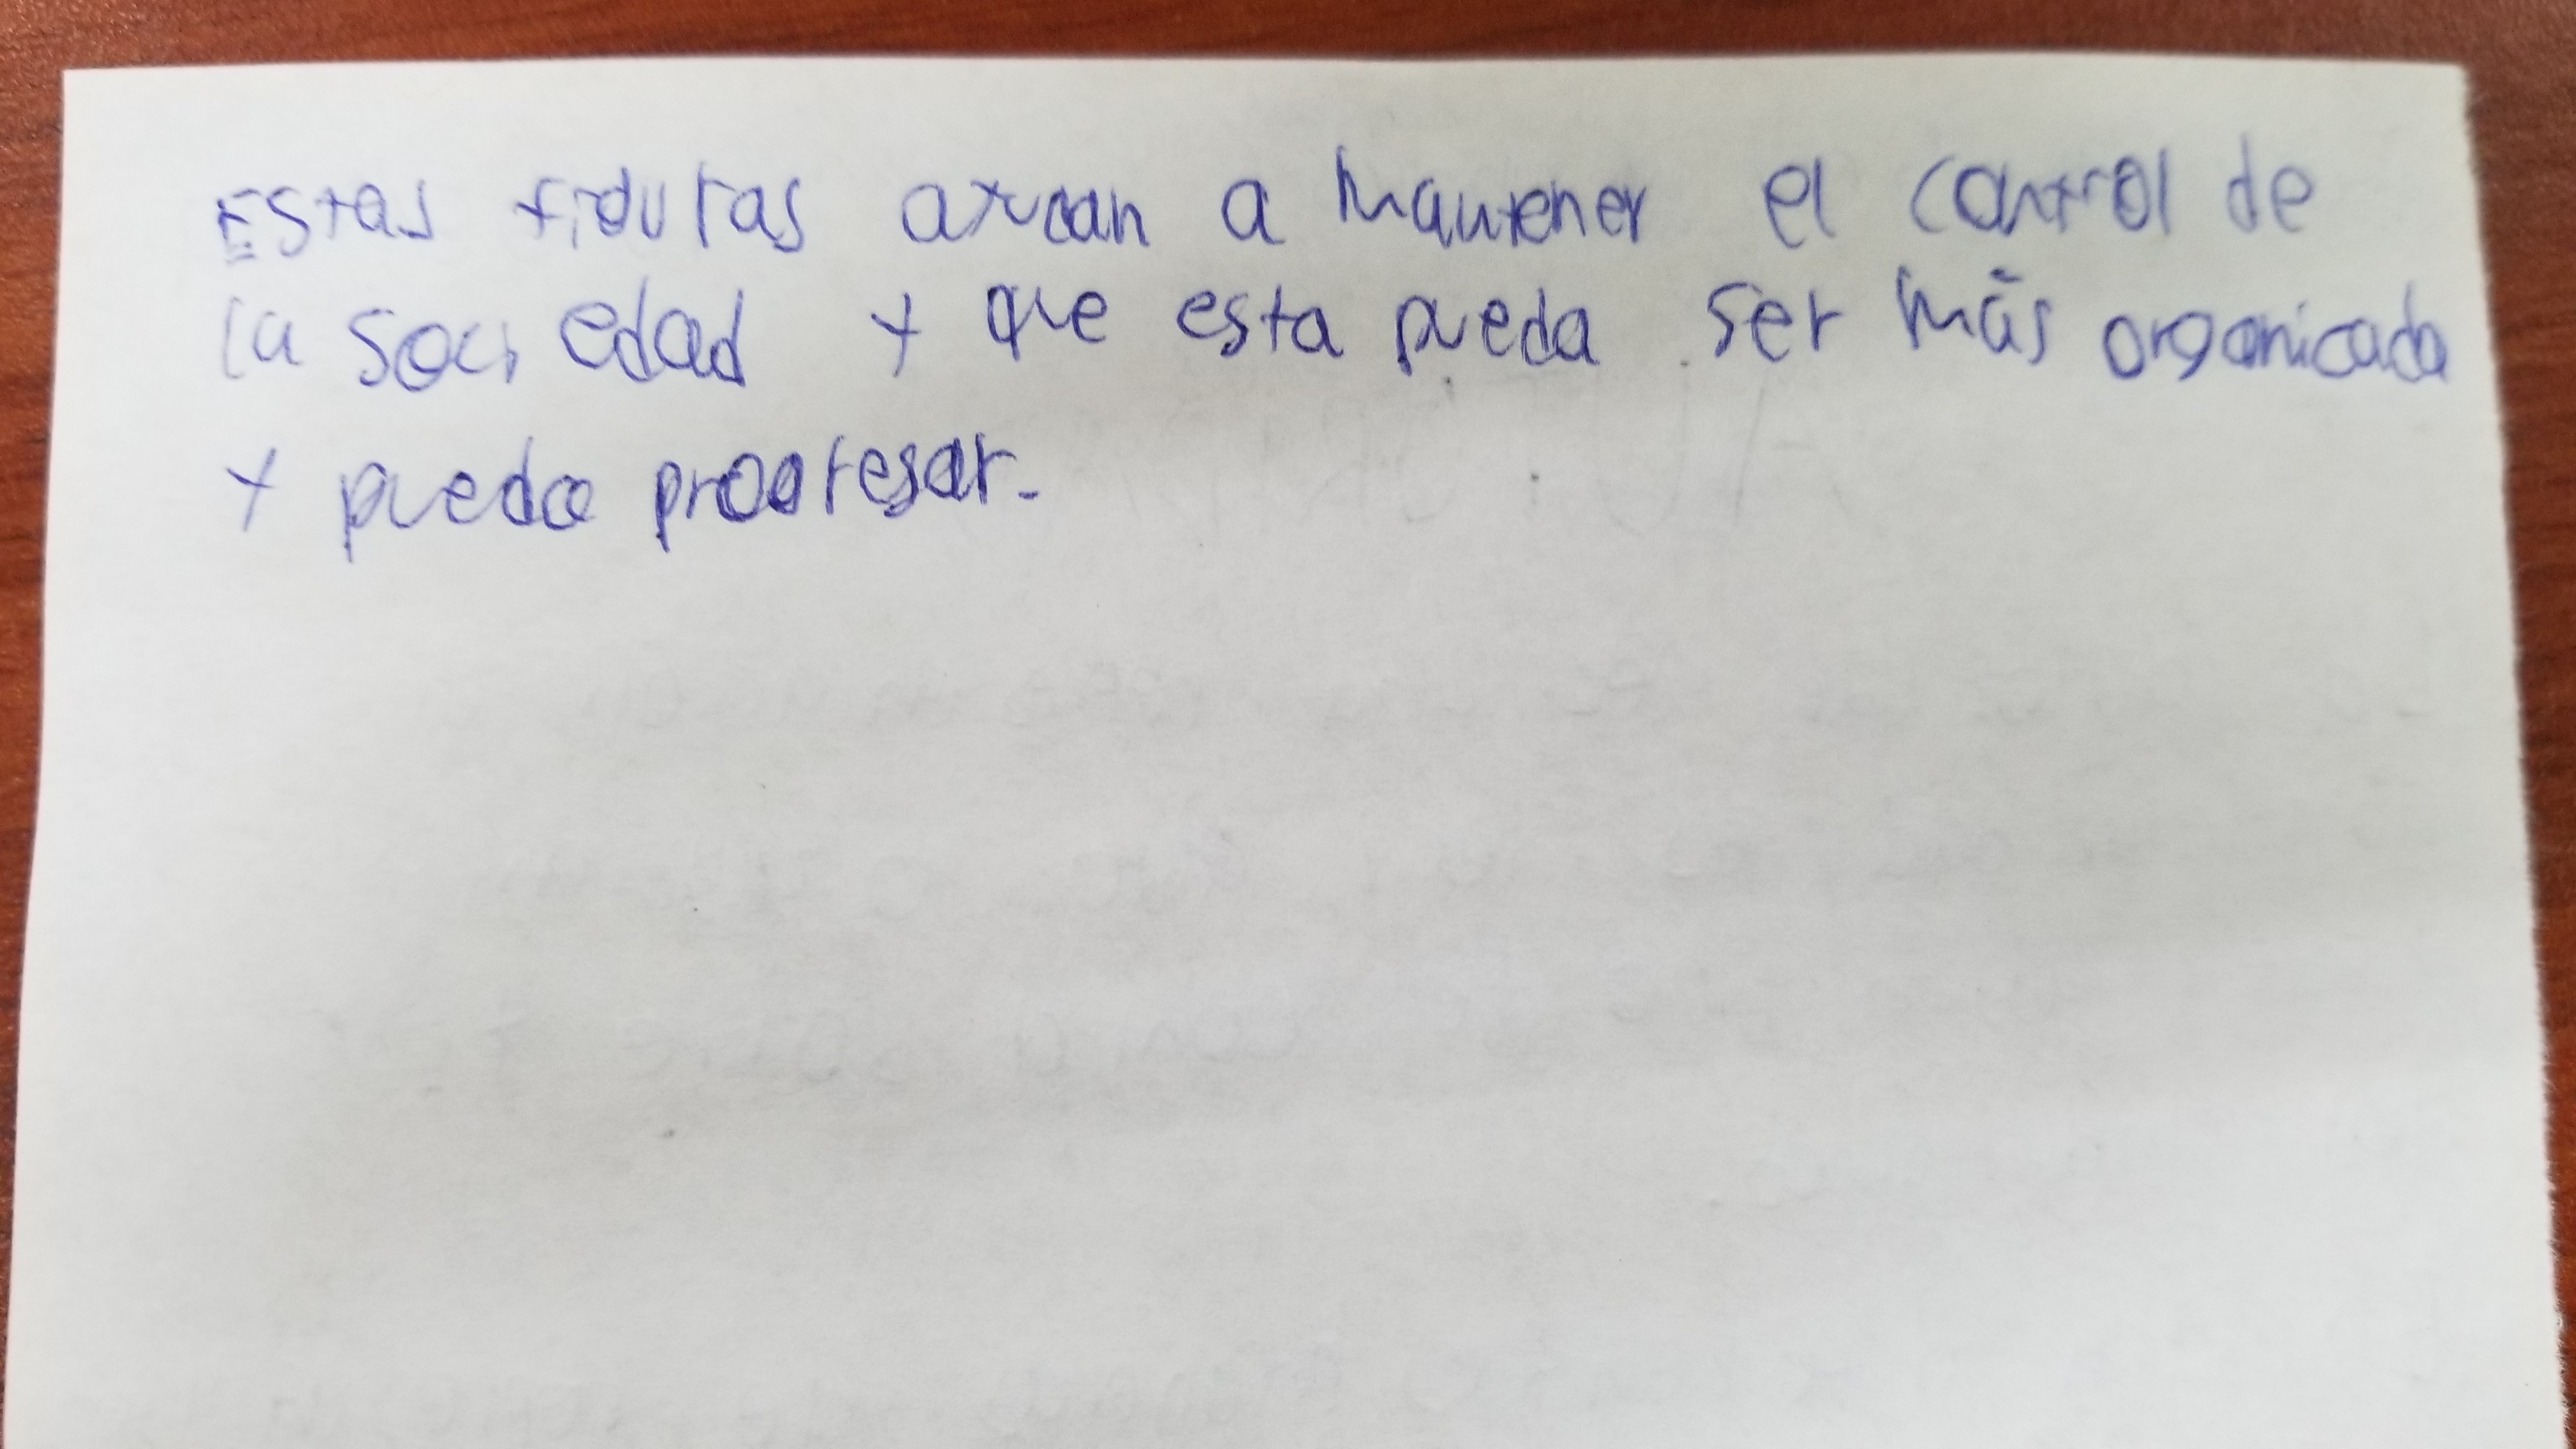 Estas tribu tas ayudan a mantener el control de
la soci edad y que esta pueda ser más organicada
y pueda progresar.